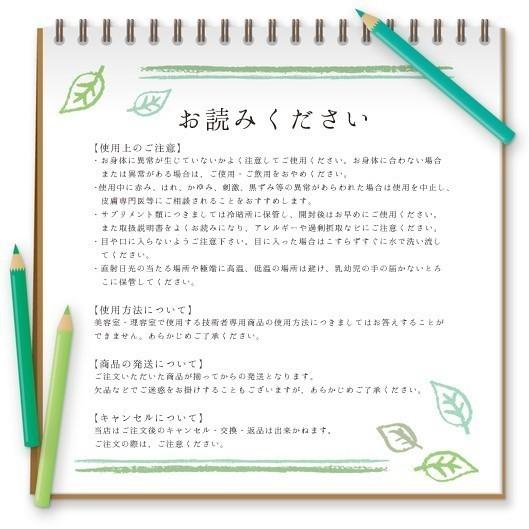 お読みください
【使用上のご注意】
・お身体に異常が生じていないかよく注意してご使用ください。お身体に合わない場合
または異常がある場合は、ご使用・ご飲用をおやめください。
・使用中に赤み、はれ、かゆみ、刺激、黒ずみ等の異常があらわれた場合は使用を中止し、
皮膚専門医等にご相談されることをおすすめします。
・サプリメント類につきましては冷暗所に保管し、開封後はお早めにご使用ください。
また取扱説明書をよくお読みになり、アレルギーや過剰摂取などにご注意ください。
・目や口に入らないようご注意下さい。目に入った場合はこすらずすぐに水で洗い流し
てください。
・直射日光の当たる場所や極端に高温、低温の場所は避け、乳幼児の手の届かないとろ
こに保管してください。
【使用方法について】
美容室・理容室で使用する技術者専用商品の使用方法につきましてはお答えすることが
できません。あらかじめご了承ください。
【商品の発送について】
ご注文いただいた商品が揃ってからの発送となります。
欠品などでご迷惑をお掛けすることもございますが、あらかじめご了承ください。
【キャンセルについて】
当店はご注文後のキャンセル・交換・返品は出来かねます。
ご注文の際は、ご注意ください。